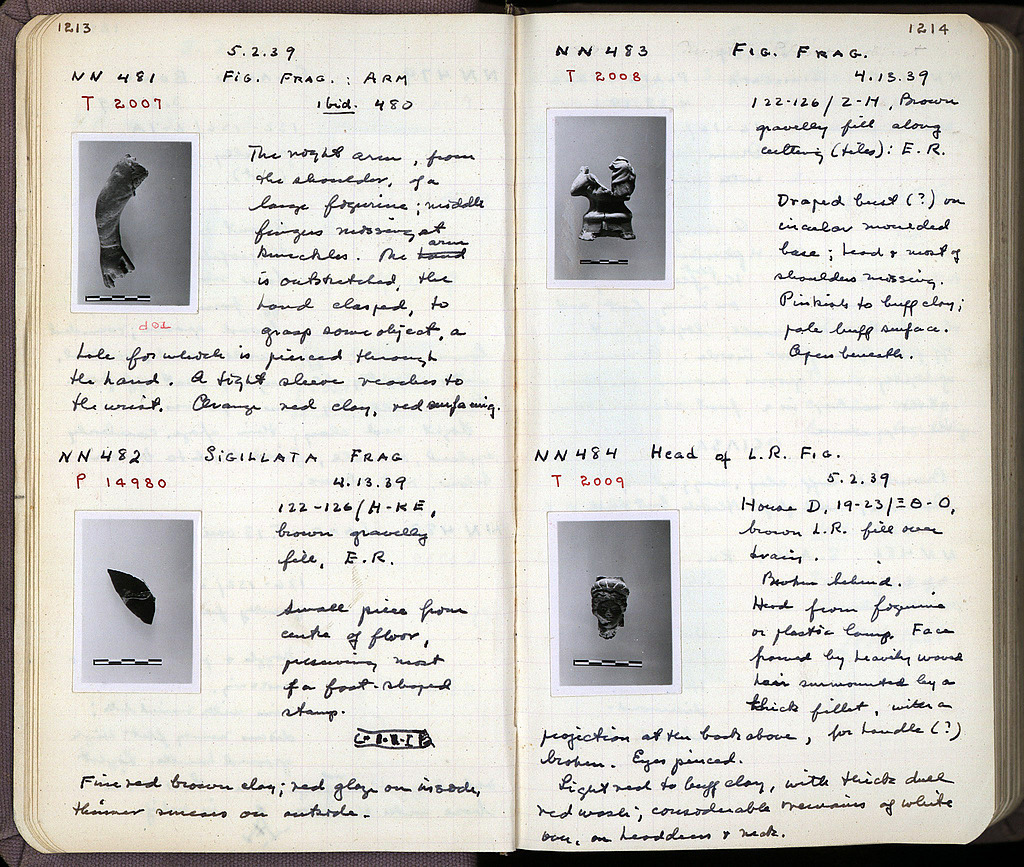 1213
5.2.39
NN 481 FIG. FRAG.: ARM
T 2007 ibid. 480
The right arm, from
the shoulder, of a
large figurine; middle
fingers missing at
knuckles. The hand arm
is outstretched, the
hand clasped, to
grasp some object, a
TOP
hole for which is pierced through
the hand. A tight sleeve reaches to
the wrist. Orange red clay, red surfacing.
NN 482 SIGILLATA FRAG
P 14980 4.13.39
122-126/H-KE,
brown gravelly
fill, E.R.
Small piece from
centre of floor,
preserving most
of a foot-shaped
stamp.
Fine red brown clay; red glaze on inside,
thinner smears on outside.
1214
NN 483 FIG. FRAG.
T 2008 4.13.39
122-126/Z-H, Brown
gravelly fill along
cutting (tiles): E.R.
Draped bust (?) on
circular moulded
base; head & most of
shoulders missing.
Pinkish to buff clay;
pale buff surface.
Open beneath.
NN 484 Head of L.R. FIG.
T 2009 5.2.39
House D, 19-23/ΞΘ-Ο,
brown L.R. fill over
drain.
Broken behind.
Head from figurine
or plastic lamp. Face
framed by heavily waved
hair surmounted by a
thick fillet, with a
projection at the back above, for handle (?)
broken. Eyes pierced.
Light red to buff clay, with thick dull
red wash; considerable remains of white
over, on headdress & neck.